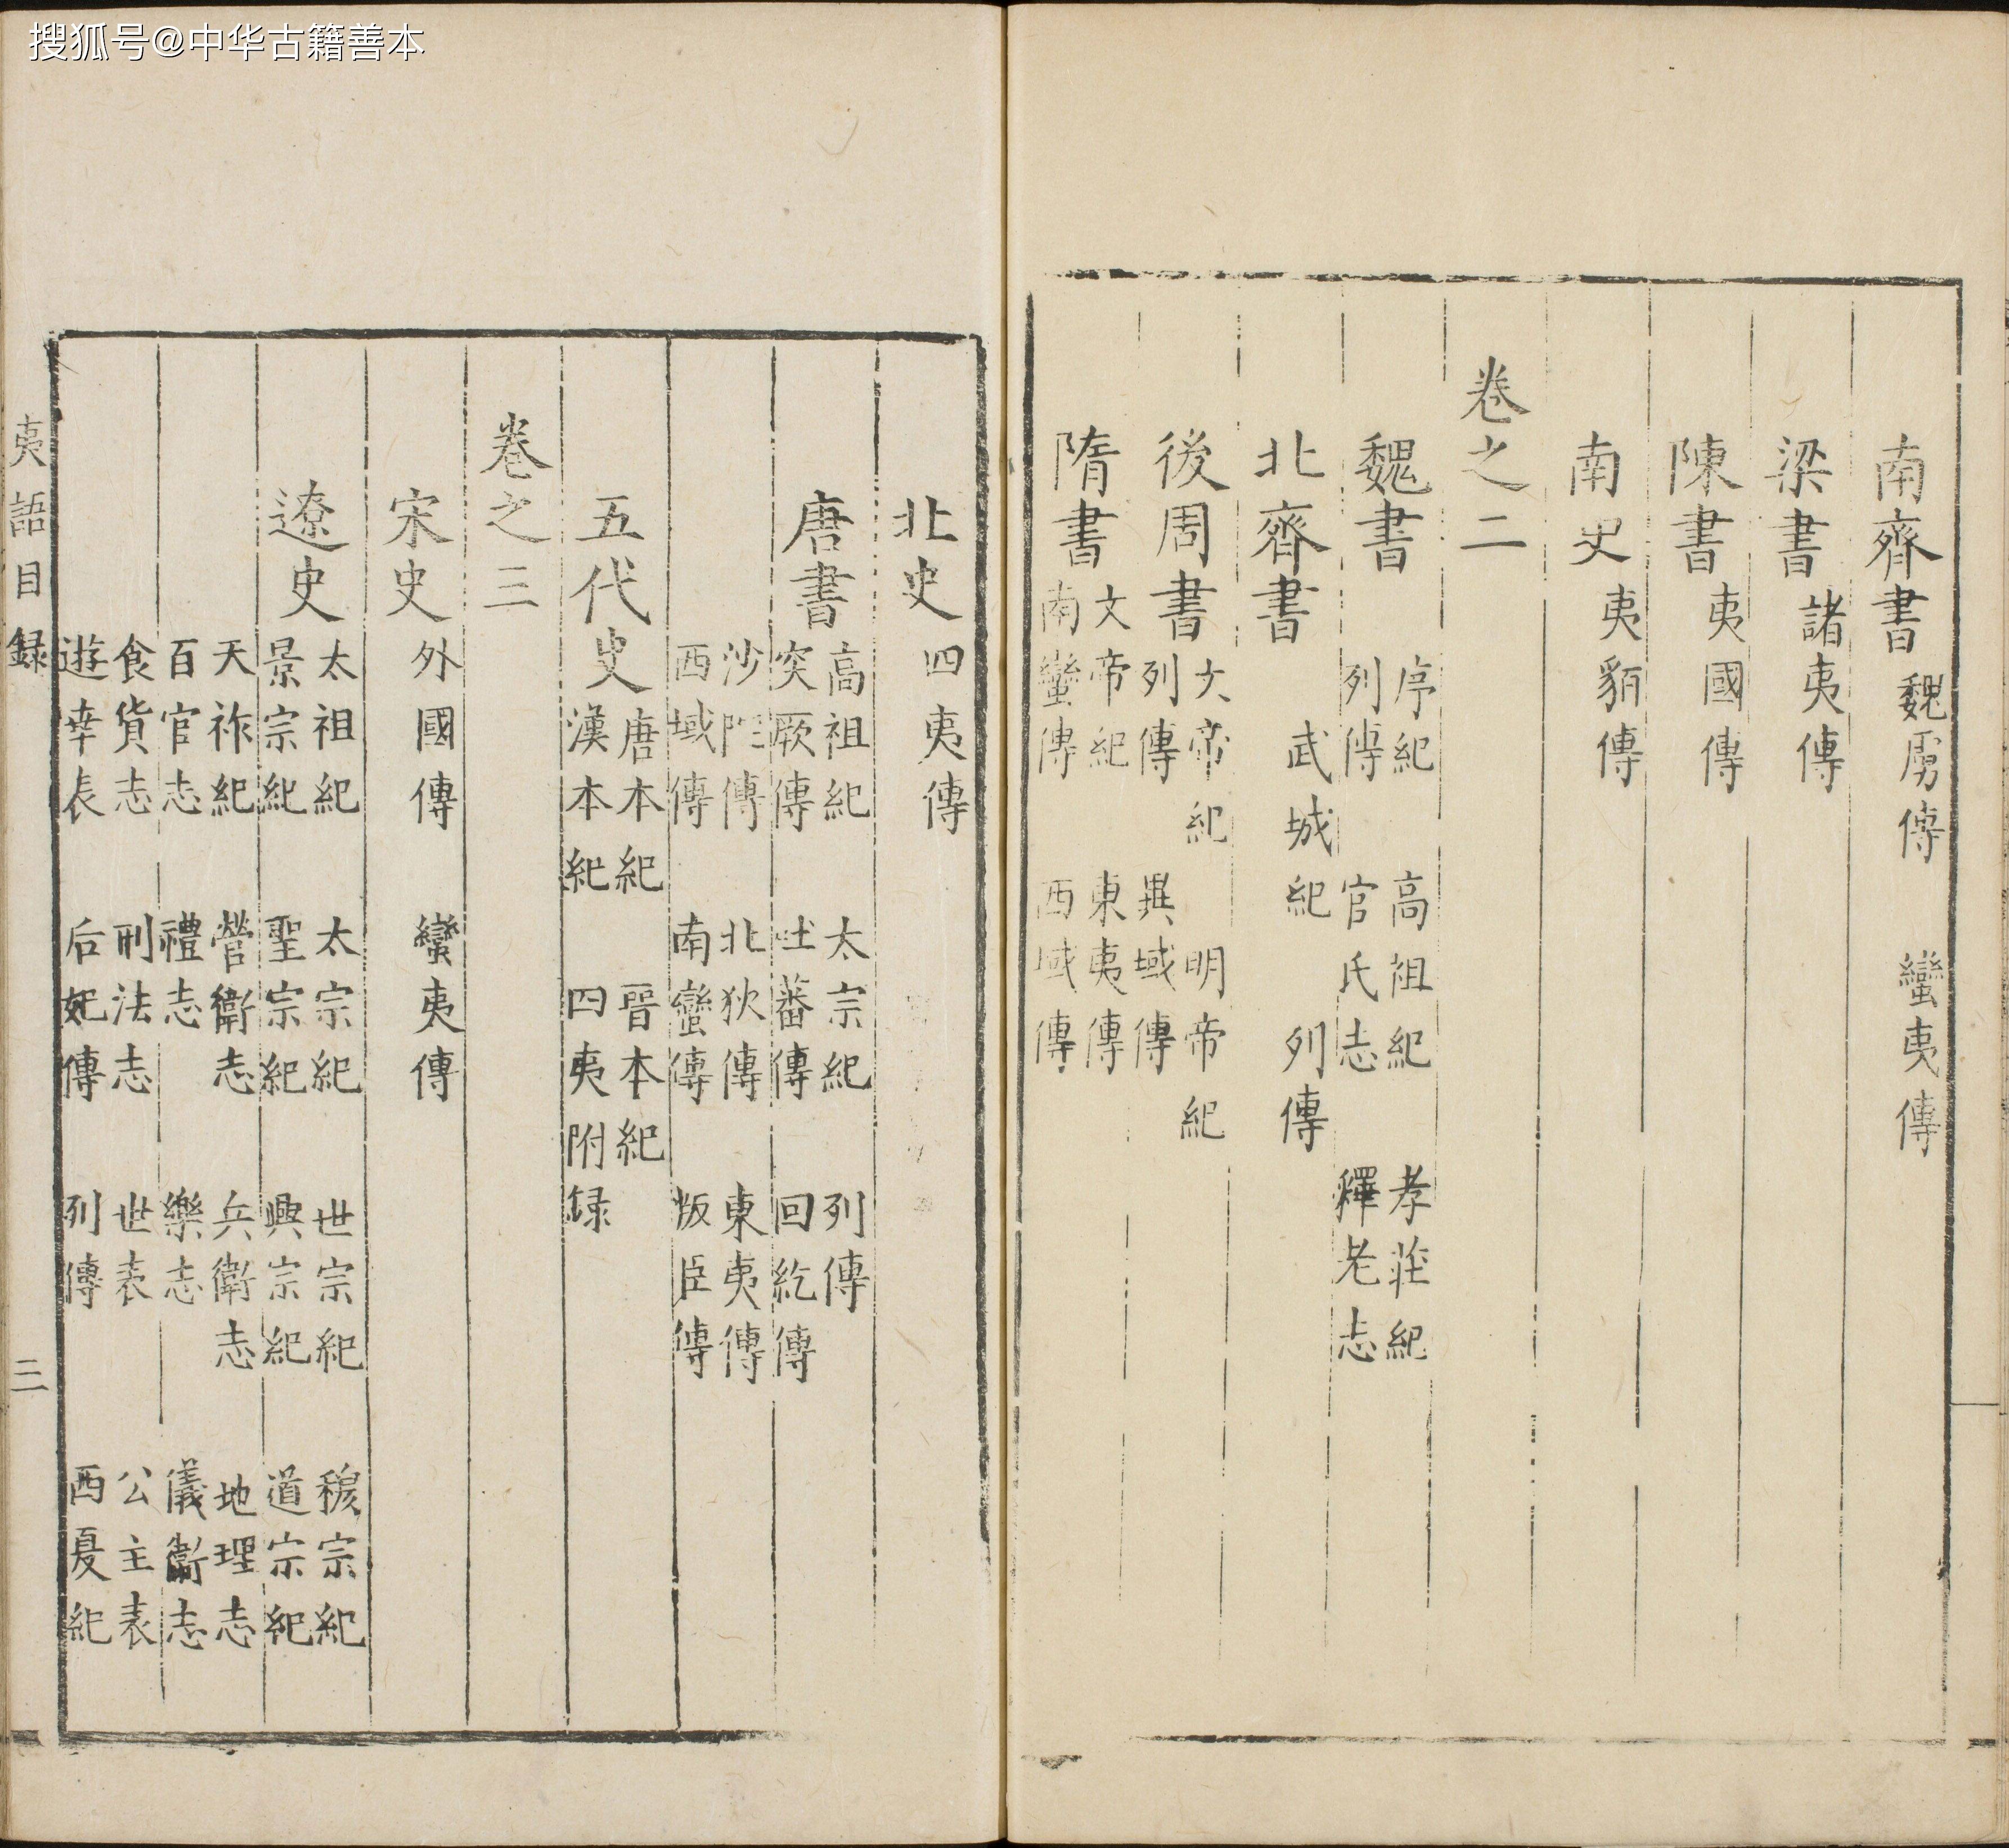 搜狐号@中华古籍善本
南齊書 魏虜傳 蠻夷傳
梁書 諸夷傳
陳書 夷國傳
南史 夷貊傳
卷之二
魏書 序紀 高祖紀 孝莊紀
列傳 官氏志 釋老志
北齊書 武城紀 列傳
後周書 文帝紀 明帝紀
列傳 異域傳
隋書 文帝紀 東夷傳
南蠻傳 西域傳
北史 四夷傳
唐書 高祖紀 太宗紀 列傳
突厥傳 吐蕃傳 回紇傳
沙陀傳 北狄傳 東夷傳
西域傳 南蠻傳 叛臣傳
五代史 唐本紀 晉本紀
漢本紀 四夷附録
卷之三
宋史 外國傳 蠻夷傳
遼史 太祖紀 太宗紀 世宗紀 穆宗紀
景宗紀 聖宗紀 興宗紀 道宗紀
天祚紀 營衛志 兵衛志 地理志
百官志 禮志 樂志 儀衛志
食貨志 刑法志 世表 公主表
遊幸表 后妃傳 列傳 西夏紀
夷語目録 三